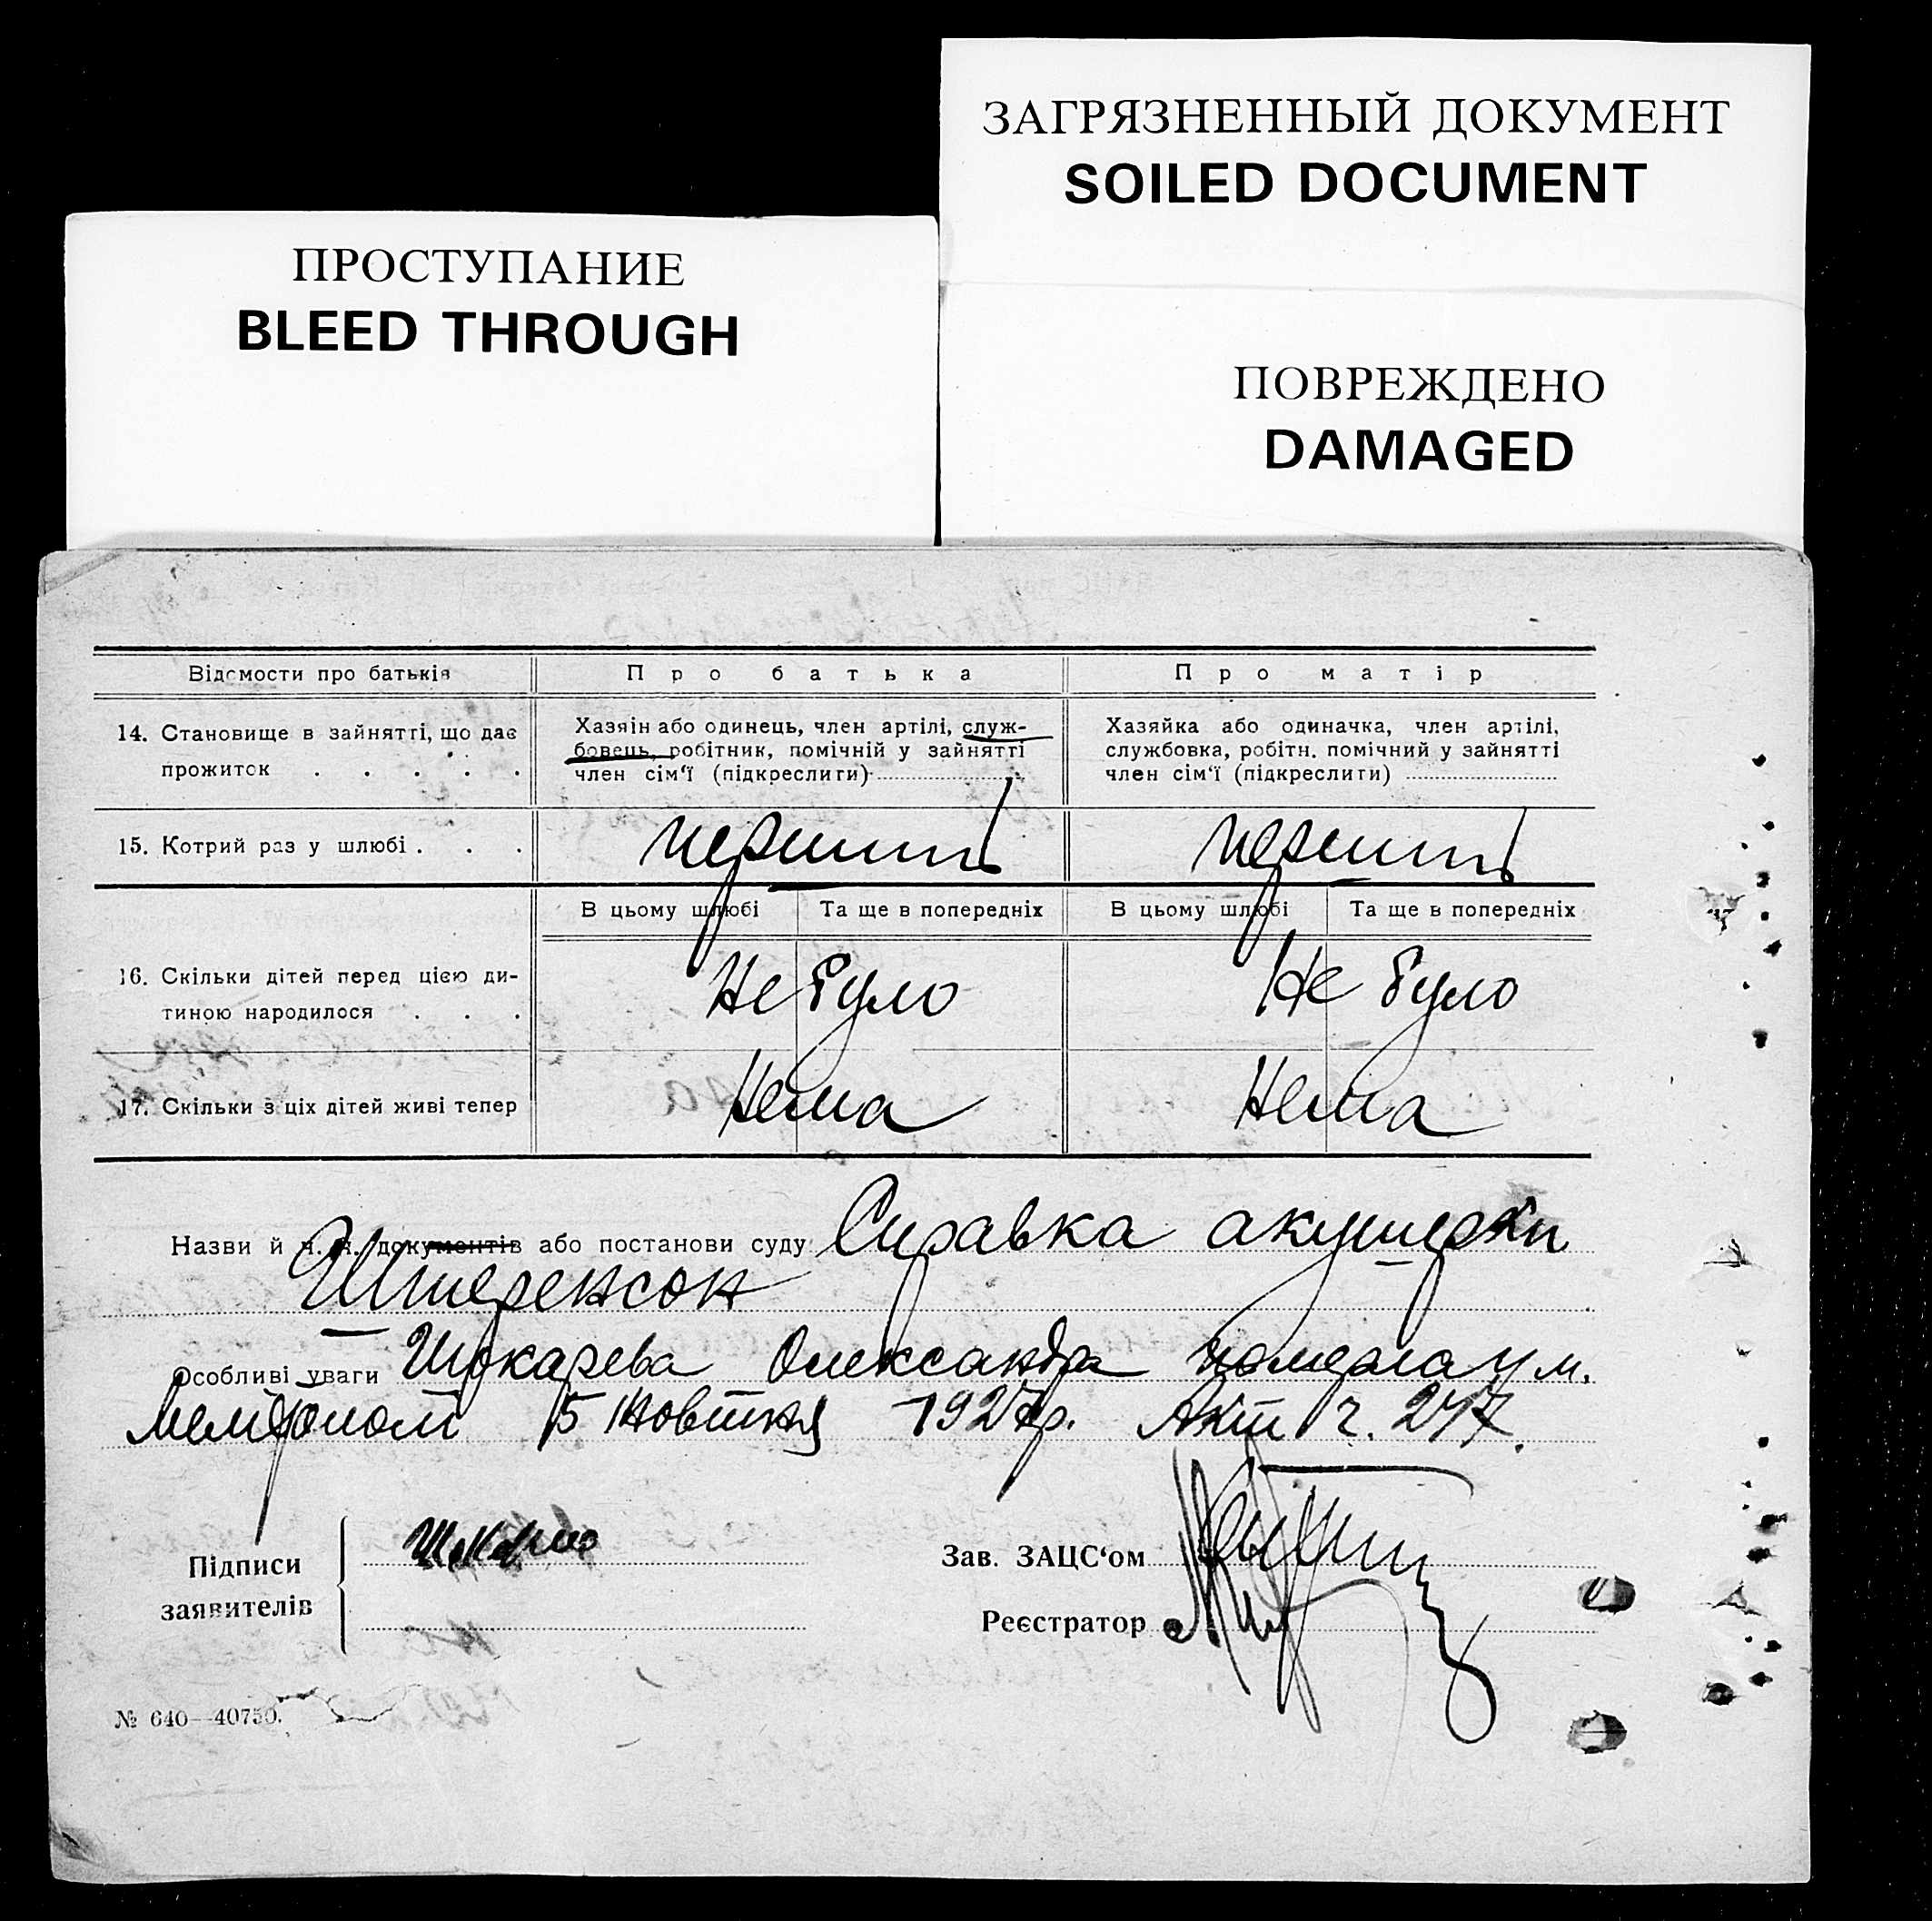 ЗАГРЯЗНЕННЫЙ ДОКУМЕНТ
SOILED DOCUMENT
ПРОСТУПАНИЕ
BLEED THROUGH
ПОВРЕЖДЕНО
DAMAGED
Відомости про батьків
Про батька
Про матір
14. Становище в зайнятті, що дає
прожиток . . . . .
Хазяін або одинець, член артілі, служ-
бовець, робітник, помічній у зайнятті
член сім‘ї (підкреслити)
Хазяйка або одиначка, член артілі,
службовка, робітн. помічний у зайнятті
член сім‘ї (підкреслити)
15. Котрий раз у шлюбі . . .
перший
перший
В цьому шлюбі
Та ще в попередніх
В цьому шлюбі
Та ще в попередніх
16. Скільки дітей перед цією ди-
тиною народилося . . .
Не було
Не було
17. Скільки з ціх дітей живі тепер
Нема
Нема
Назви й ч.ч. документів або постанови суду Справка акушерки
Штеренсон
Особливі уваги Шокарева Олександра померла у м.
Мелітополі 5 Жовтня 1927р. Акт ч. 247.
Підписи
заявителів
Зав. ЗАЦС‘ом
Реєстратор
№ 640—40750.